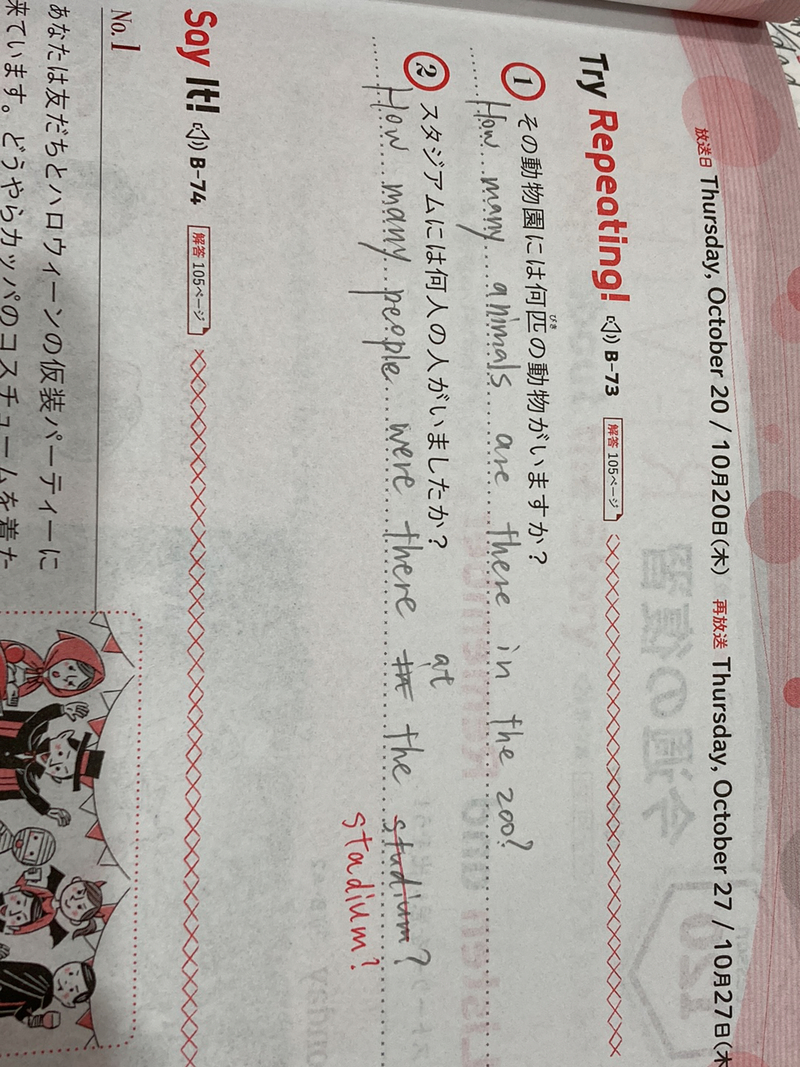 放送日 Thursday, October 20 / 10月20日(木) 再放送 Thursday, October 27 / 10月27日(木
Try Repeating! B-73 解答 105ページ
① その動物園には何匹の動物がいますか?
びき
How many animals are there in the zoo?
② スタジアムには何人の人がいましたか?
at
How many people were there in the studium?
stadium?
Say It! B-74 解答 105ページ
No.1
あなたは友だちとハロウィーンの仮装パーティーに
来ています。どうやらカッパのコスチュームを着た